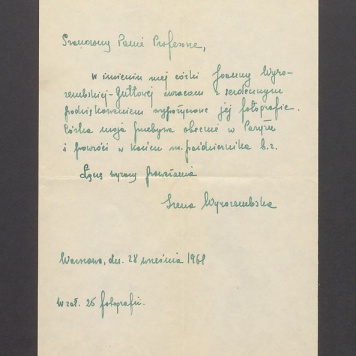 Szanowny Panie Profesorze,
w imieniu mej córki Joanny Wyro-
zembskiej-Guttowej zwracam z serdecznym
podziękowaniem wypożyczone jej fotografie.
Córka moja przebywa obecnie w Paryżu
i powróci w końcu m. października b.r.
Łączę wyrazy poważania
Irena Wyrozembska
Warszawa, dn. 28 września 1961
W zał. 25 fotografii.